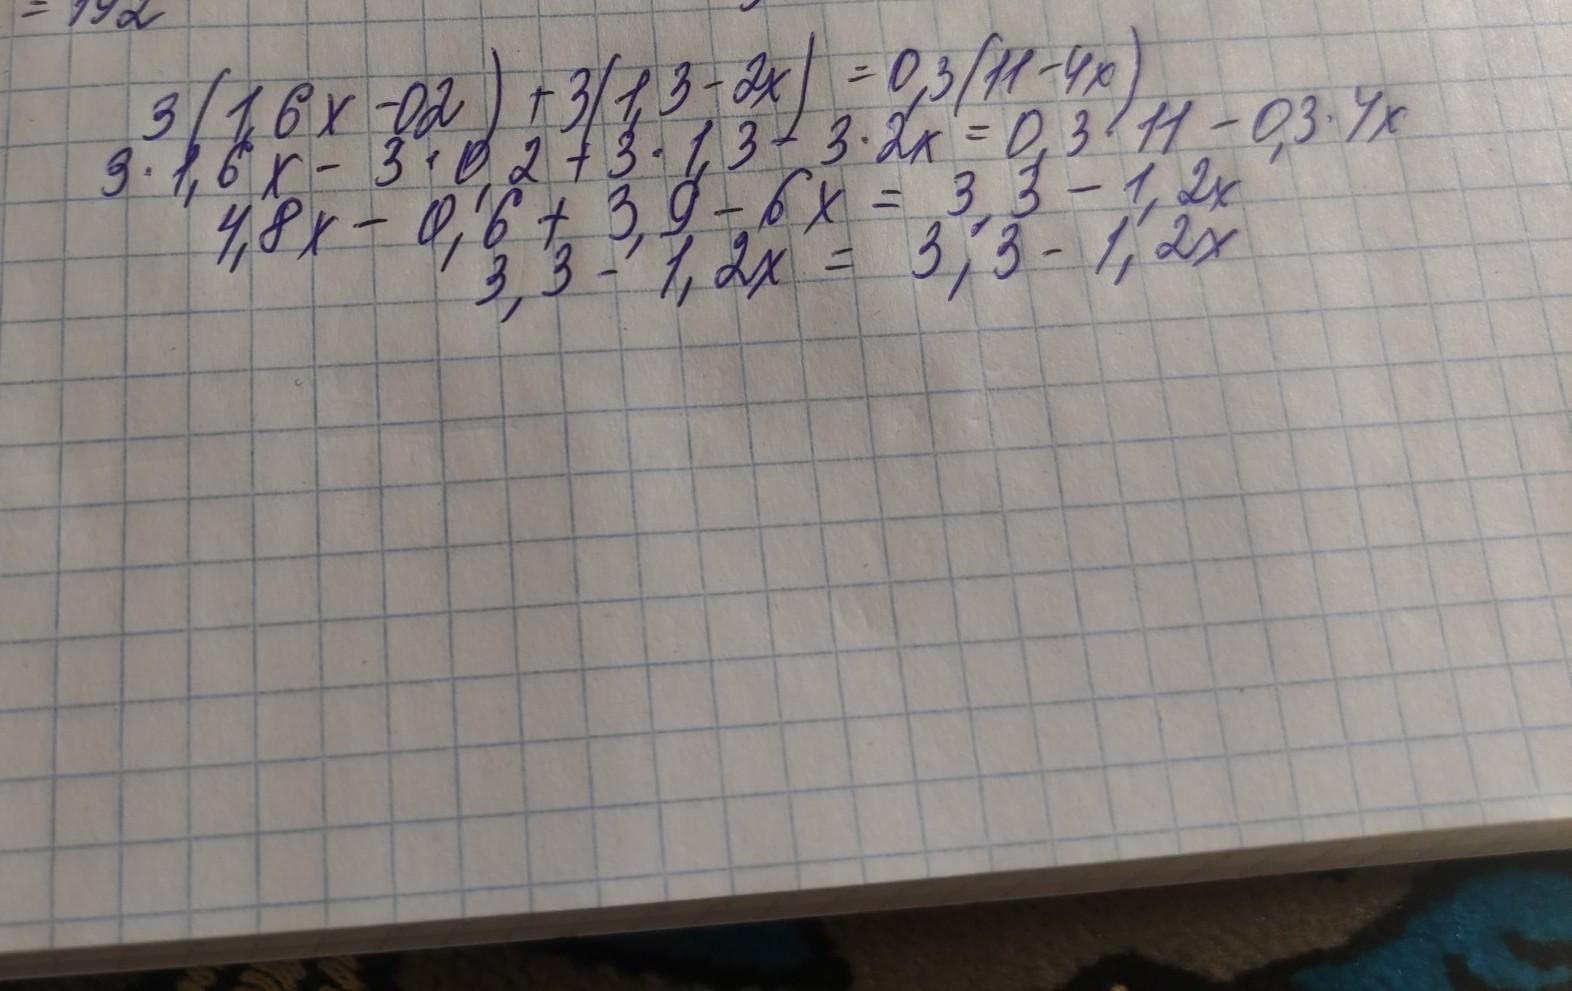 = 192
3(1,6x - 02) + 3(1,3 - 2x) = 0,3(11 - 4x)
3·1,6x - 3·0,2 + 3·1,3 - 3·2x = 0,3·11 - 0,3·4x
4,8x - 0,6 + 3,9 - 6x = 3,3 - 1,2x
3,3 - 1,2x = 3,3 - 1,2x